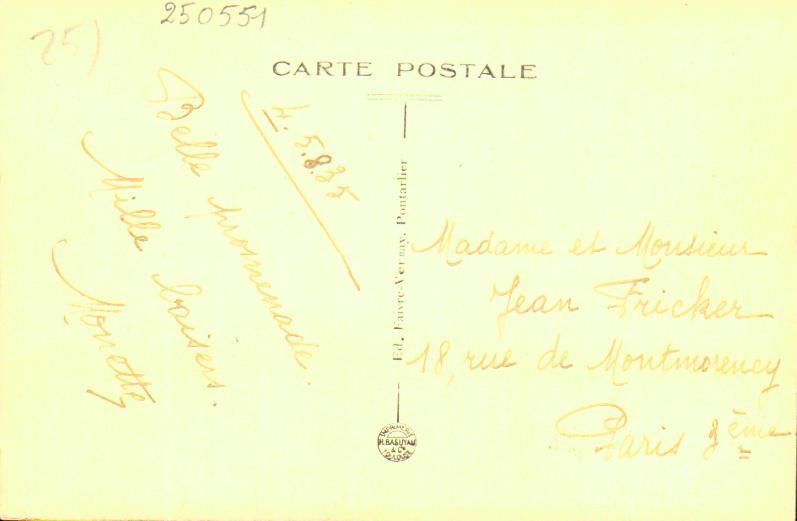 250551
25)
CARTE POSTALE
4. 5.8.35
Belle promenade.
Mille baisers.
Monette
Ed. Faivre-Vernay, Pontarlier
Madame et Monsieur
Jean Fricker
18, rue de Montmorency
Paris 3ème
IMPRIMERIE
H. BASUYAU
& Cie
TOULOUSE